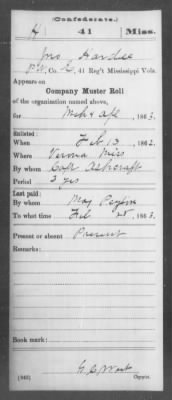 (Confederate.)
H 41 Miss.
Jno Hardee
Pvt, Co. C, 41 Reg't Mississippi Vols.
Appears on
Company Muster Roll
of the organization named above,
for Mch & Apl, 1863.
Enlisted:
When Feb 13, 1862.
Where Verona Miss
By whom Capt Ashcraft
Period 3 yrs
Last paid:
By whom Maj
To what time Feb 28, 1863.
Present or absent Present
Remarks:
Book mark:
(642)
Copyist.